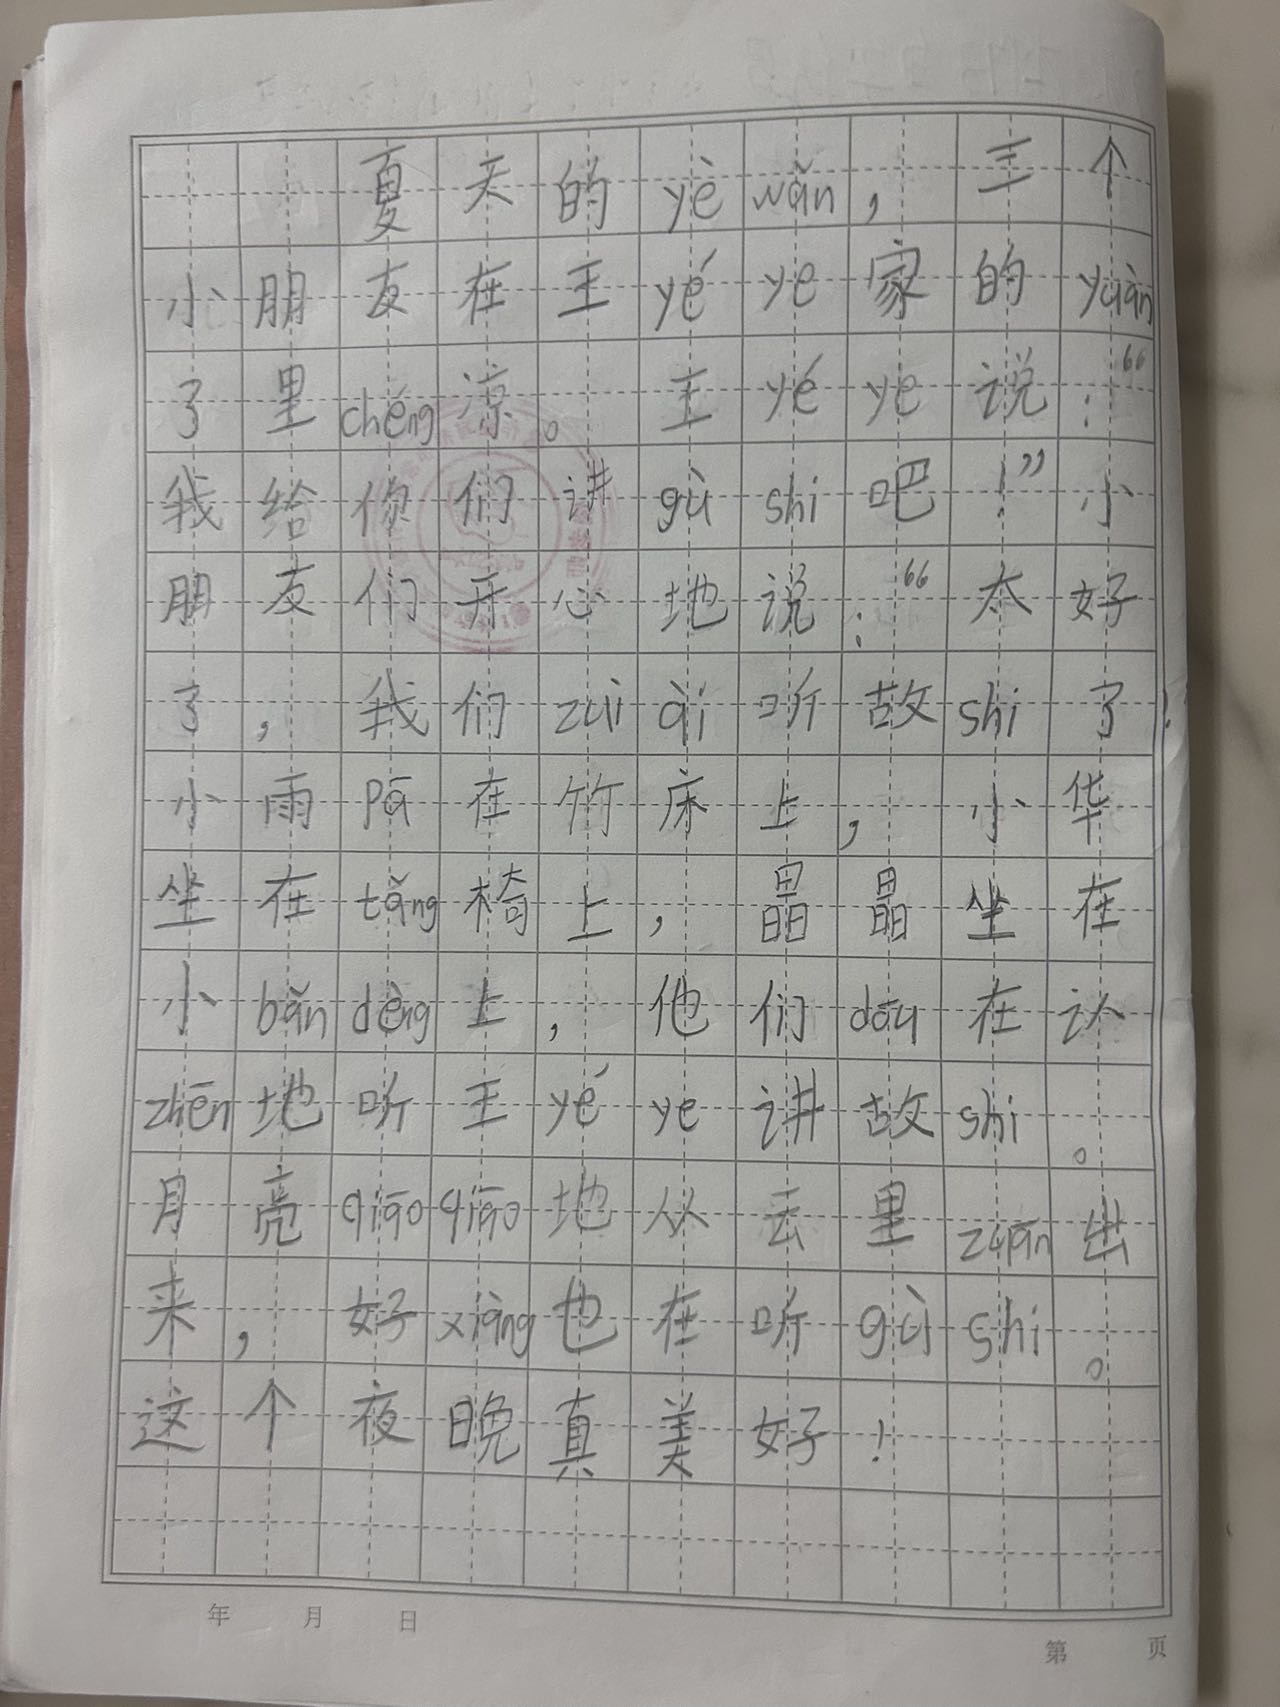 夏天的yè wǎn，三个
小朋友在王yé ye家的yuàn
了里chéng凉。王yé ye说：“
我给你们讲gù shi吧！”小
朋友们开心地说：“太好
了，我们zuì ài听故shi了！
小雨pā在竹床上，小华
坐在tǎng椅上，晶晶坐在
小bǎn dèng上，他们dōu在认
zhēn地听王yé ye讲故shi。
月亮qiāo qiāo地从云里zuān出
来，好xiàng也在听gù shi。
这个夜晚真美好！
年 月 日
第 页